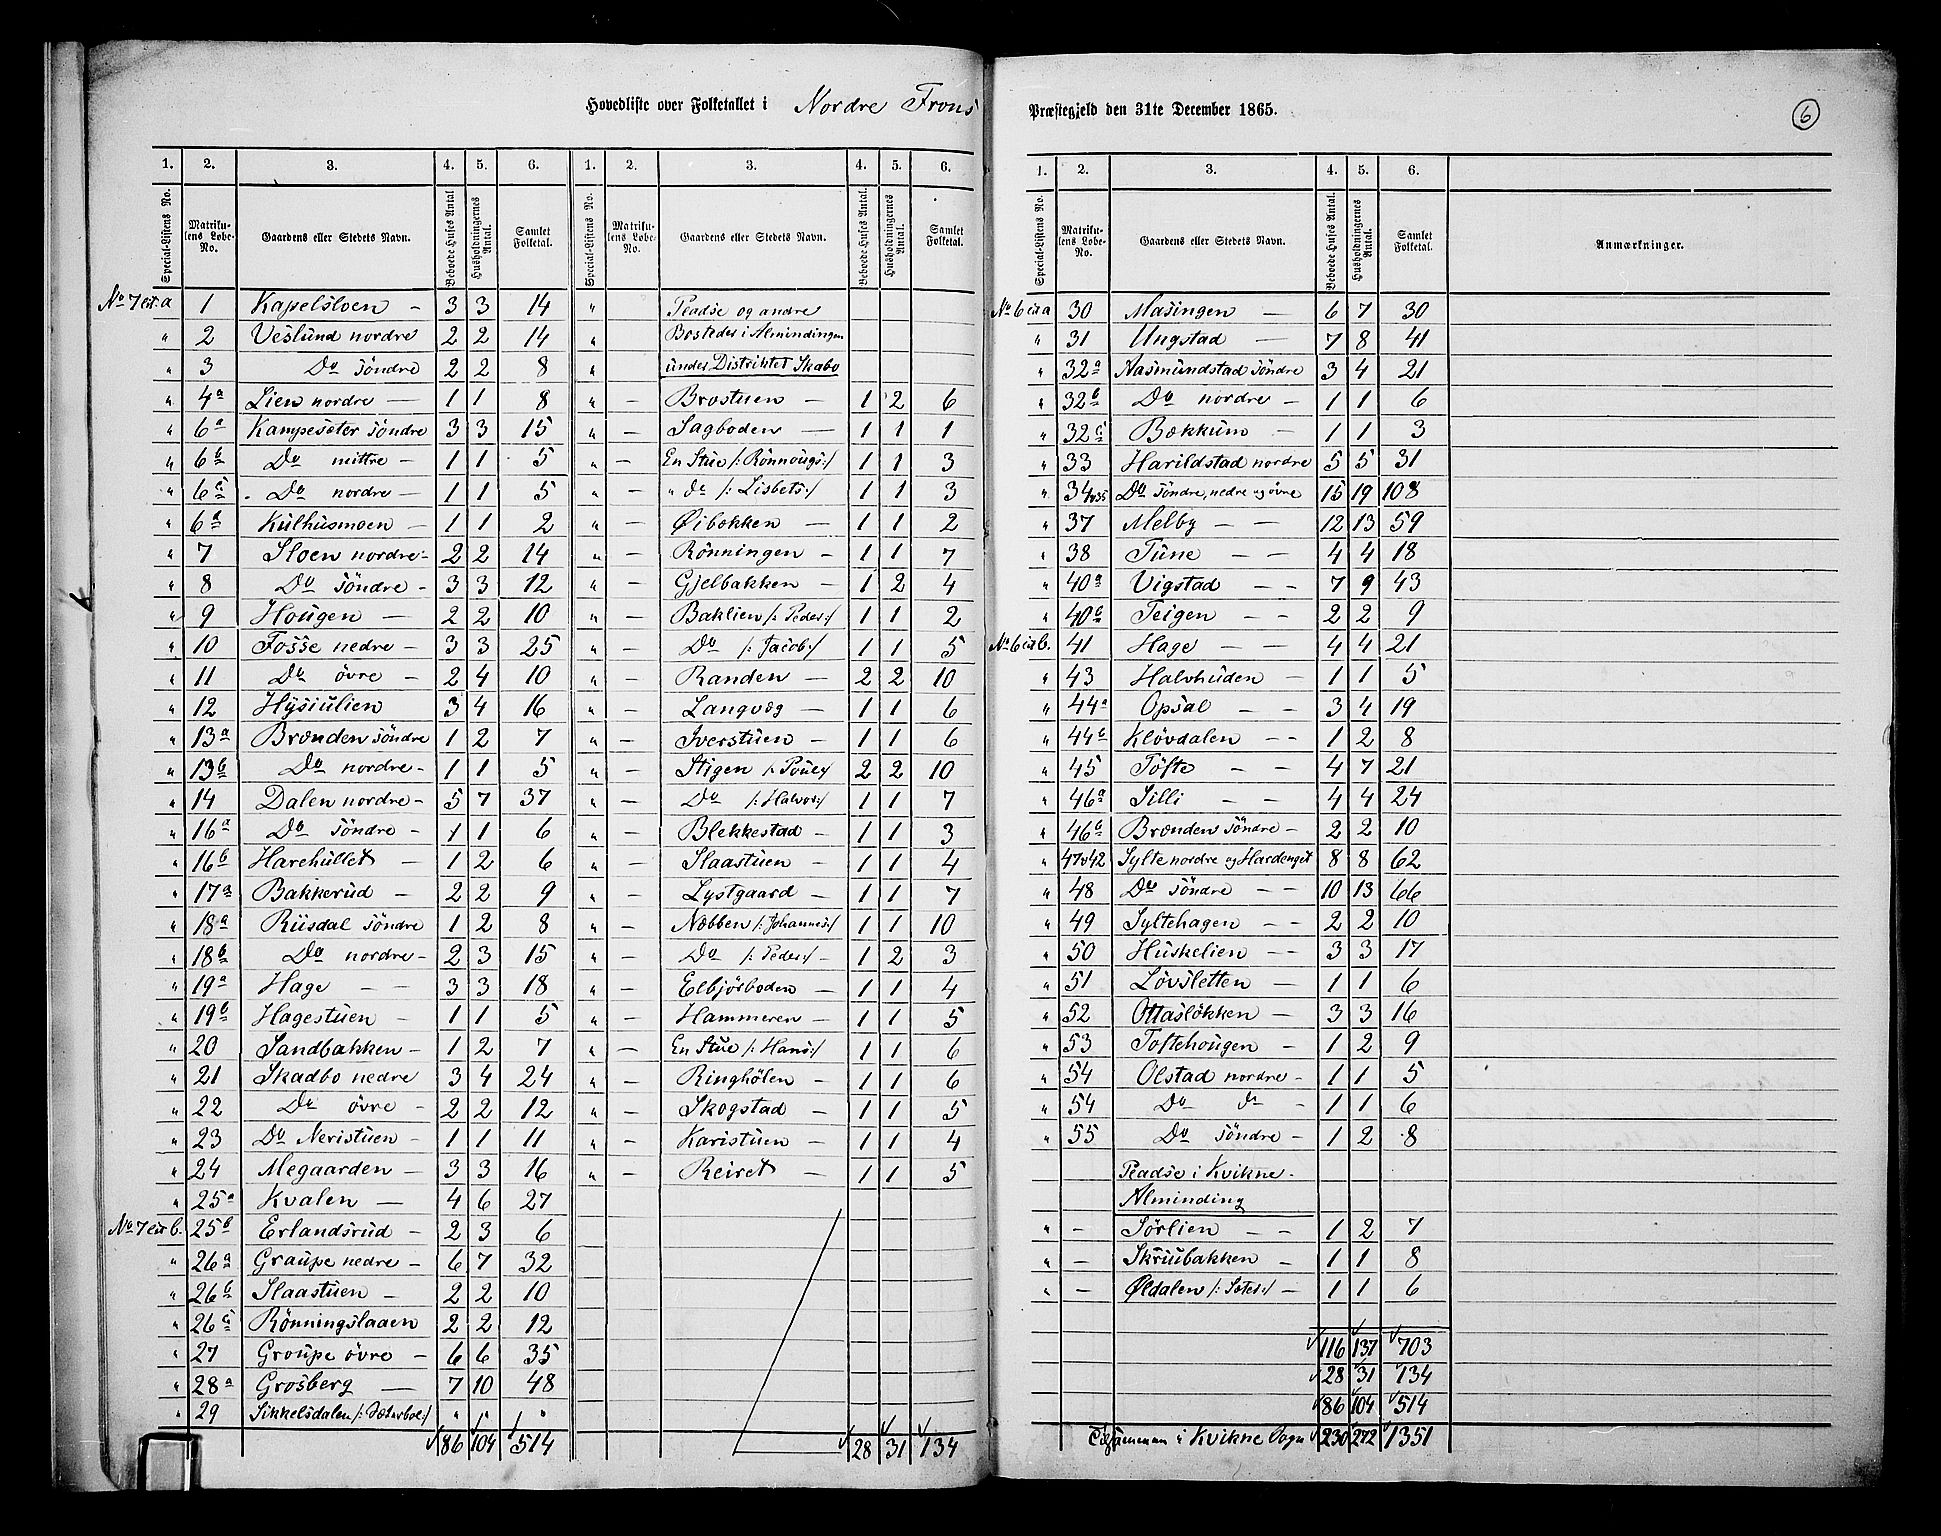 Hovedliste over Folketallet i Nordre Frons Præstegjeld den 31te December 1865.
6
1. 2. 3. 4. 5. 6. 1. 2. 3. 4. 5. 6.
Special-Listens No. Matrikulens Løbe-No. Gaardens eller Stedets Navn. Beboede Huses Antal Husholdningernes Antal. Samlet Folketal. Special-Listens No. Matrikulens Løbe-No. Gaardens eller Stedets Navn. Beboede Huses Antal. Husholdningernes Antal. Samlet Folketal.
No 7 list. a 1 Kapelsloen - 3 3 14
" 2 Veslund nordre 2 2 14
" 3 Do söndre 2 2 8
" 4a Lien nordre — 1 1 8
" 6a Kampesæter söndre 3 3 15
" 6b Do mittre - 1 1 5
" 6c Do nordre - 1 1 5
" 6a Kulhusmoen - 1 1 2
" 7 Sloen nordre - 2 2 14
" 8 Do söndre - 3 3 12
" 9 Hougen - 2 2 10
" 10 Fosse nedre - 3 3 25
" 11 Do övre - 2 4 10
" 12 Hysiulien 3 4 16
" 13a Brænden söndre 1 2 7
" 13b Do nordre - 1 1 5
" 14 Dalen nordre - 5 7 37
" 16a Do söndre - 1 1 6
" 16b Harehullet - 1 2 6
" 17a Bakkerud - 2 2 9
" 18a Rusdal söndre 1 2 8
" 18b Do nordre - 2 3 15
" 19a Hage - - 3 3 18
" 19b Hagestuen - 1 1 5
" 20 Sandbakken - 1 2 7
" 21 Skadbo nedre 3 4 24
" 22 Do övre - 2 2 12
" 23 Do Neristuen - 1 1 11
" 24 Megaarden - 3 3 16
" 25a Kvalen — 4 6 27
No 7 list b. 25b Erlandsrud - 2 3 6
" 26a Graupe nedre - 6 7 32
" 26b Slaastuen - 2 2 10
" 26c Rönningslaaen 2 2 12
" 27 Groupe övre - 6 6 35
" 28a Grosberg — 7 10 48
" 29 Sikkelsdalen /: Sæterbol :/ " " "
86 104 514
" Pladse og andre
" Bosteder i Almindingen
" under Distriktet Skabo
" - Brostuen - 1 2 6
" - Sagboden — 1 1 1
" - En Stue /: Rönnougs :/ 1 1 3
" - " do /: Lisbets :/ 1 1 3
" - Øibakken — 1 1 2
" - Rönningen - 1 1 7
" - Gjelbakken - 1 2 4
" - Baklien /: Peder :/ 1 1 2
" - Do /: Jacob :/ 1 1 5
" - Randen - 2 2 10
" - Langvæg - 1 1 6
" - Iverstuen - 1 1 6
" - Stigen /: Poul :/ 2 2 10
" - Do /: Halvor :/ 1 1 7
" - Blekkestad - 1 1 3
" - Slaastuen - 1 1 4
" - Lystgaard - 1 1 7
" - Næbben /: Johannes :/ 1 1 10
" - Do /: Peder :/ - 1 2 3
" - Elbjörboden - 1 1 4
" - Hammeren - 1 1 5
" - En Stue /: Hans :/ 1 1 6
" - Ringhölen - 1 1 6
" - Skogstad - 1 1 5
" - Karistuen - 1 1 4
" - Reiret - 1 1 5
28 31 134
1. 2. 3. 4. 5. 6.
Special-Listens No. Matrikulens Løbe-No. Gaardens eller Stedets Navn. Beboede Huses Antal. Husholdningernes Antal. Samlet Folketal. Anmærkninger.
No 6 list a 30 Masingen — 6 7 30
" 31 Ungstad — 7 8 41
" 32a Aasmundstad söndre 3 4 21
" 32b Do nordre - 1 1 6
" 32c Bækkum - 1 1 3
" 33 Harildstad nordre 5 5 31
" 34 & 35 Do söndre, nedre og övre 15 19 108
" 37 Melby - - 12 13 59
" 38 Tune - - 4 4 18
" 40a Vigstad - - 7 9 43
" 40b Teigen - - 2 2 9
No 6 list b. 41 Hage - - 4 4 21
" 43 Halvhuden - 1 1 5
" 44a Opsal - - 3 4 19
" 44b Klövdalen - - 1 2 8
" 45 Tofte - - 4 7 21
" 46a Silli - - 4 4 24
" 46b Brænden söndre - 2 2 10
" 47 & 42 Sylte nordre og Hardenget 8 8 62
" 48 Do söndre - - 10 13 66
" 49 Syltehagen - - 2 2 10
" 50 Huskelien - - 3 3 17
" 51 Lövsletten - 1 1 6
" 52 Ottaslökken - 3 3 16
" 53 Toftehougen - 1 2 9
" 54 Olstad nordre - 1 1 5
" 54 Do do - 1 1 6
" 55 Do söndre - 1 2 8
Pladse i Kvikne -
Alminding
" - Sörlien - - 1 2 7
" - Skriubakken - 1 1 8
" - Øldalen /: Sæter :/ - 1 1 6
116 137 703
28 31 134
86 104 514
Tilsammen i Kvikne Sogn 230 272 1351